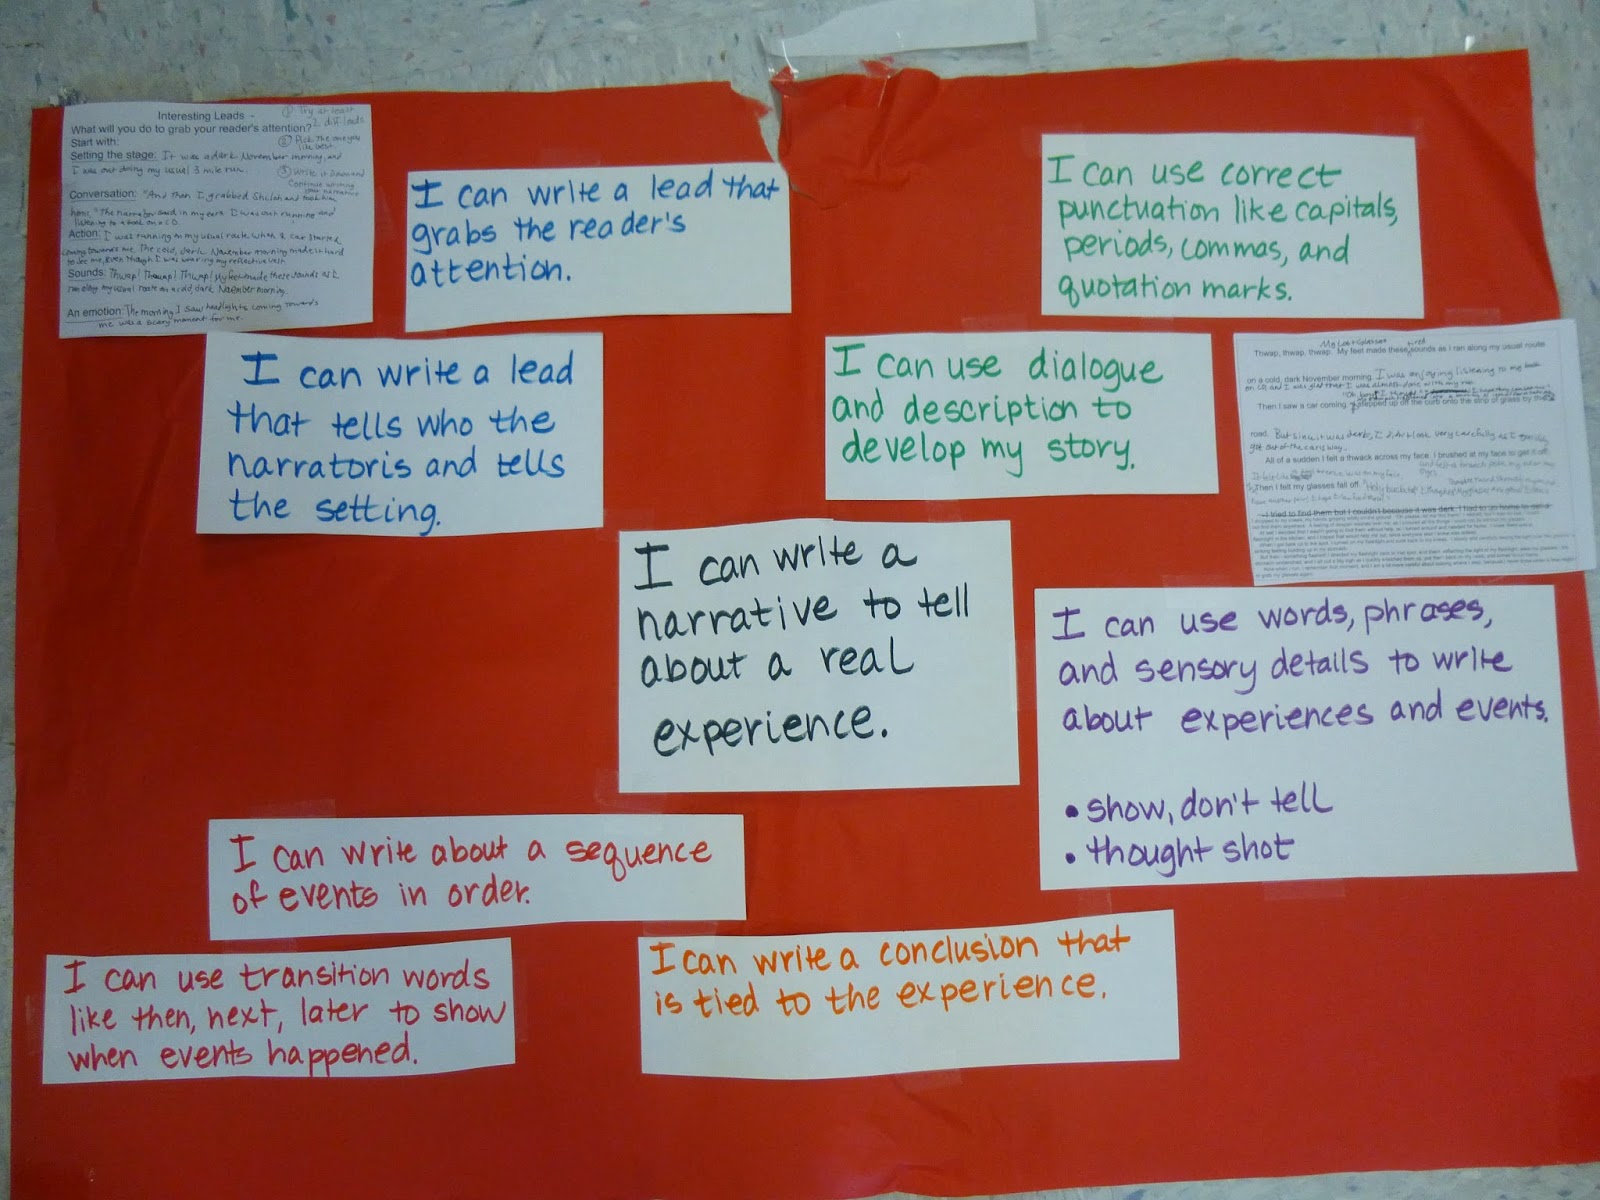 Interesting Leads -
What will you do to grab your reader's attention?
Start with:
① Try at least
2 diff leads
② Pick the one you
like best
③ Write it down and
Continue writing
your narrative
Setting the stage: It was a dark November morning, and
I was out doing my usual 3 mile run.
Conversation: "And then I grabbed Shiloh and took him
home." The narrator said in my ears. I was out running and
listening to a book on a CD.
Action: I was running on my usual route when a car started
coming towards me. The cold, dark November morning made it hard
to see me, even though I was wearing my reflective vest.
Sounds: Thwap! Thwap! Thwap! My feet made these sounds as I
ran along my usual route on a cold, dark November morning.
An emotion: The morning I saw headlights coming towards
me was a scary moment for me.
I can write a lead that
grabs the reader's
attention.
I can use correct
punctuation like capitals,
periods, commas, and
quotation marks.
I can write a lead
that tells who the
narrator is and tells
the setting.
I can use dialogue
and description to
develop my story.
My Lost Glasses
Thwap, thwap, thwap. My feet made these sounds as I ran along my usual route
on a cold, dark November morning. I was enjoying listening to my book
on CD, and I was glad that I was almost done with my run.
Then I saw a car coming. I stepped up off the curb onto the strip of grass by the
road. But since it was dark, I didn't look very carefully as I
got out of the car's way.
All of a sudden I felt a thwack across my face. I brushed at my face
Then I felt my glasses fall off.
I tried to find them but I couldn't because it was dark. I had to go home
I can write a
narrative to tell
about a real
experience.
I can use words, phrases,
and sensory details to write
about experiences and events.
• show, don't tell
• thought shot
I can write about a sequence
of events in order.
I can use transition words
like then, next, later to show
when events happened.
I can write a conclusion that
is tied to the experience.